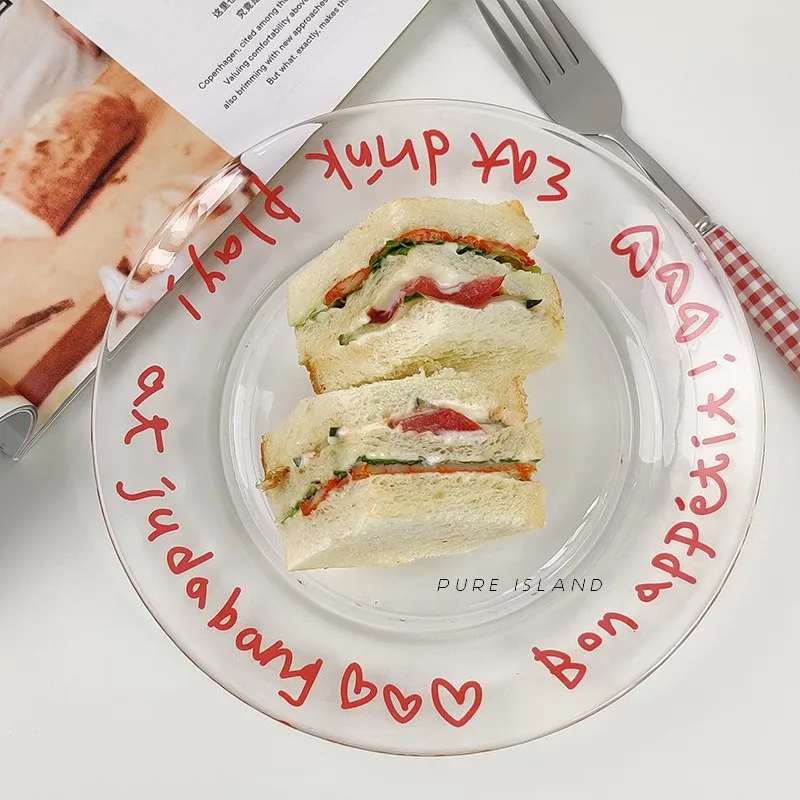 这里
究竟
Copenhagen, cited among the
Valuing comfortability above
also brimming with new approaches
But what, exactly, makes the
Eat drink play!
at judabang
Bon appétit!
PURE ISLAND